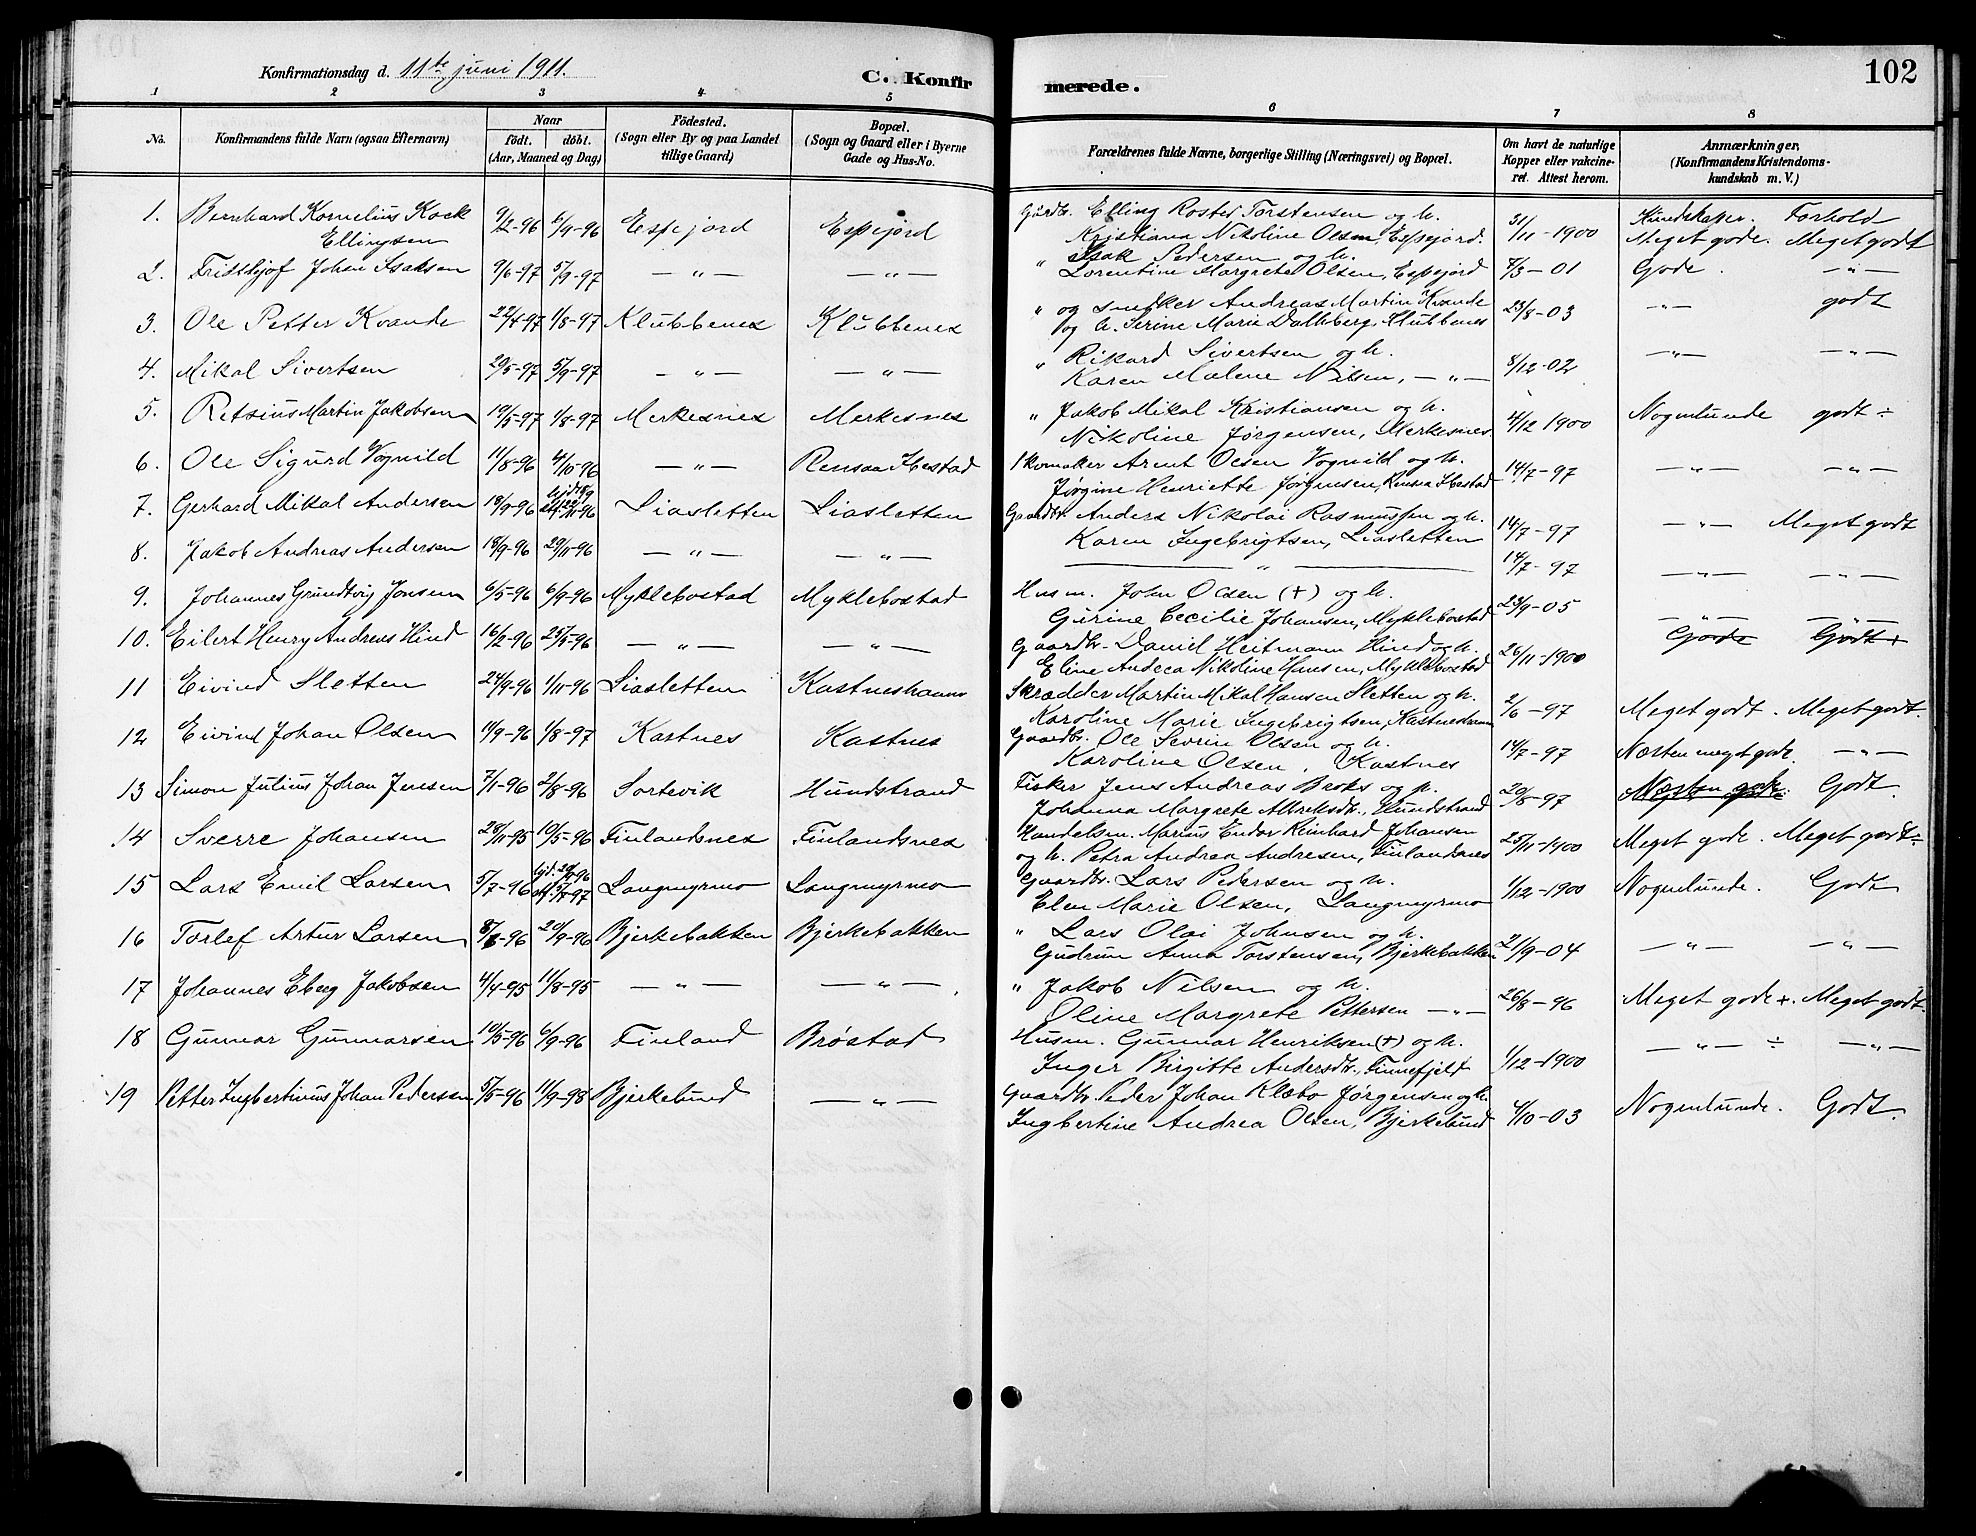 Konfirmationsdag d. 11te juni 1911.
C. Konfirmerede.
102
1 2 3 4 5 6 7 8
No. Konfirmandens fulde Navn (ogsaa Efternavn) Naar födt. döbt. (Aar, Maaned og Dag) Födested. (Sogn eller By og paa Landet tillige Gaard) Bopæl. (Sogn og Gaard eller i Byerne Gade og Hus-No. Forældrenes fulde Navne, borgerlige Stilling (Næringsvei) og Bopæl. Om havt de naturlige Kopper eller vakcineret. Attest herom. Anmærkninger. (Konfirmandens Kristendomskundskab m. V.)
Kundskaper. Forhold
1. Bernhard Kornelius Kock Ellingsen 9/2-96 6/9-96 Espejord Espejord Gårdbr. Elling Rosted Torstensen og h. Kristiana Nikoline Olsen, Espejord. 3/11-1900 Meget gode. Meget godt
2. Fritthjof Johan Isaksen 9/6-97 5/9-97 — " — — " — " Isak Pedersen og h. Lorentine Margrete Olsen, Espejord 4/3-01 Gode. — " —
3. Ole Petter Kvande 22/4-97 1/8-97 Klubbenes Klubbenes " og snedker Andreas Martin Kvande og h. Serine Marie Dathberg, Klubbenes 23/8-03 — " — godt
4. Mikal Sivertsen 29/5-97 5/9-97 — " — — " — " Rikard Sivertsen og h. Karen Malene Nilsen, — " — 8/12-02 — " — — " —
5. Retsius Martin Jakobsen 19/5-97 1/8-97 Merkesnes Merkesnes " Jakob Mikal Kristiansen og h. Nikoline Jørgensen, Merkesnes 4/12 1900 Nogenlunde godt ÷
6. Ole Sigurd Vognild 11/8-96 4/10-96 — " — Rensaa Ibestad Skomaker Arent Olsen Vognild og h. Jørgine Henriette Jørgensen, Rensaa Ibestad 14/7-97 — " — — " —
7. Gerhard Mikal Andersen 18/9-96 hjd. 18/9 stf. 29/11-96 Liasletten Liasletten Gaardbr. Anders Nikolai Rasmussen og h. Karen Ingebrigtsen, Liasletten 14/7-97 — " — Meget godt
8. Jakob Andreas Andersen 18/9-96 29/11-96 — " — — " — — " — 14/7-97 — " — — " —
9. Johannes Grundtvig Jonsen 6/5-96 6/9-96 Myklebostad Myklebostad Husm. John Olsen (+) og h. Gurine Cecilie Johansen, Myklebostad 23/9-05 — " — — " —
10. Eilert Henry Andreas Hind 16/2-96 25/5-96 — " — — " — Gaardbr. Daniel Heitmann Hind og h. Eline Andrea Nikoline Hansen, Myklebostad 26/11-1900 Gode Godt +
11 Eivind Sletten 24/9-96 1/11-96 Liasletten Kastneshavn Skrædder Martin Mikal Hansen Sletten og h. Karoline Marie Ingebrigtsen, Kastneshavn 2/6-97 Meget godt. Meget godt.
12 Eivind Johan Olsen 11/9-96 1/8-97 Kastnes Kastnes Gaardbr. Ole Sevrin Olsen og h. Karoline Olsen, Kastnes 14/7-97 Næsten meget gode. — " —
13 Simon Julius Johan Jensen 7/1-96 2/8-96 Sortevik Hundstrand Fisker Jens Andreas Broks og h. Johanna Margrete Albriktsdr., Hundstrand 20/8-97 Næsten gode. Godt.
14 Sverre Johansen 28/11-95 10/5-96 Finlandsnes Finlandsnes Handelsm. Marius Endor Reinhard Johansen og h. Petra Andrea Andresen, Finlandsnes 25/11-1900 Meget gode. Meget godt ÷
15 Lars Emil Larsen 5/7-96 5/8-97 Langmyrmo Langmyrmo Gaardbr. Lars Pedersen og h. Elen Marie Olsen, Langmyrmo 1/12-1900 Nogenlunde. Godt
16 Torlef Artur Larsen 8/8-96 20/9-96 Bjerkebakken Bjerkebakken " Lars Olai Johnsen og h. Gudrun Anna Torstensen, Bjerkebakken 21/9-04 — " — — " —
17 Johannes Eberg Jakobsen 4/4-95 11/8-95 — " — — " — " Jakob Nilsen og h. Oline Margrete Pettersen — " — 26/8-96 Meget gode +. Meget godt.
18 Gunnar Gunnarsen 10/5-96 6/9-96 Finland Brøstad Husm. Gunnar Henriksen (+) og h. Inger Birgitte Andersdr., Finnefjeld 1/12-1900 — " — ÷ — " —
19 Petter Ingbertinus Johan Pedersen 5/5-96 11/9-98 Bjerkelund — " — Gaardbr. Peder Johan Klæbo Jørgensen og h. Ingbertine Andrea Olsen, Bjerkelund 4/10-03 Nogenlunde. Godt.